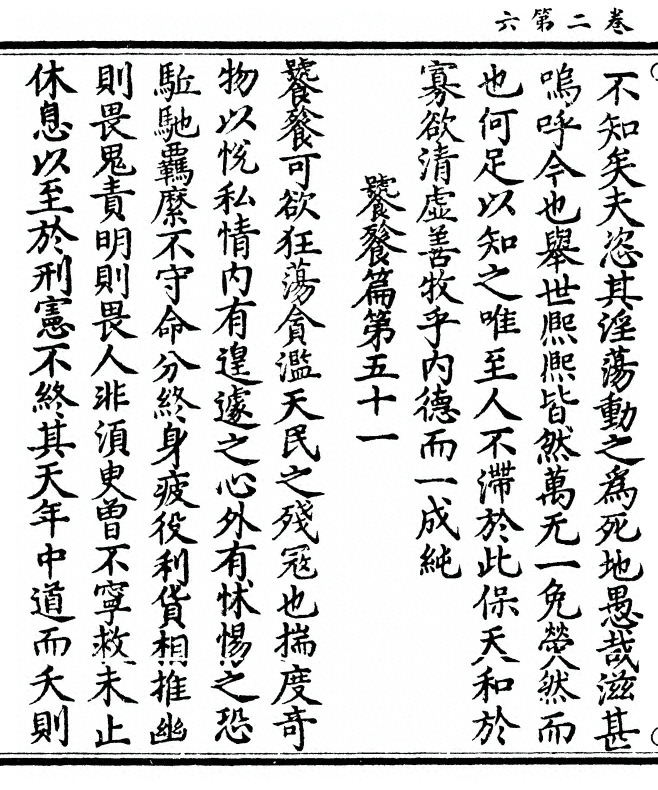 卷二第六
不知矣夫恣其淫蕩動之爲死地愚哉滋甚
嗚呼今也舉世熙熙皆然萬无一免煢然而
也何足以知之唯至人不滯於此保天和於
寡欲清虛善牧乎內德而一成純
饕餮篇第五十一
饕餮可欲狂蕩貪濫天民之殘冦也揣度竒
物以悅私情內有遑遽之心外有怵惕之恐
駈馳羈縻不守命分終身疲役利貨相推幽
則畏鬼責明則畏人非須臾曾不寧救未止
休息以至於刑憲不終其天年中道而夭則